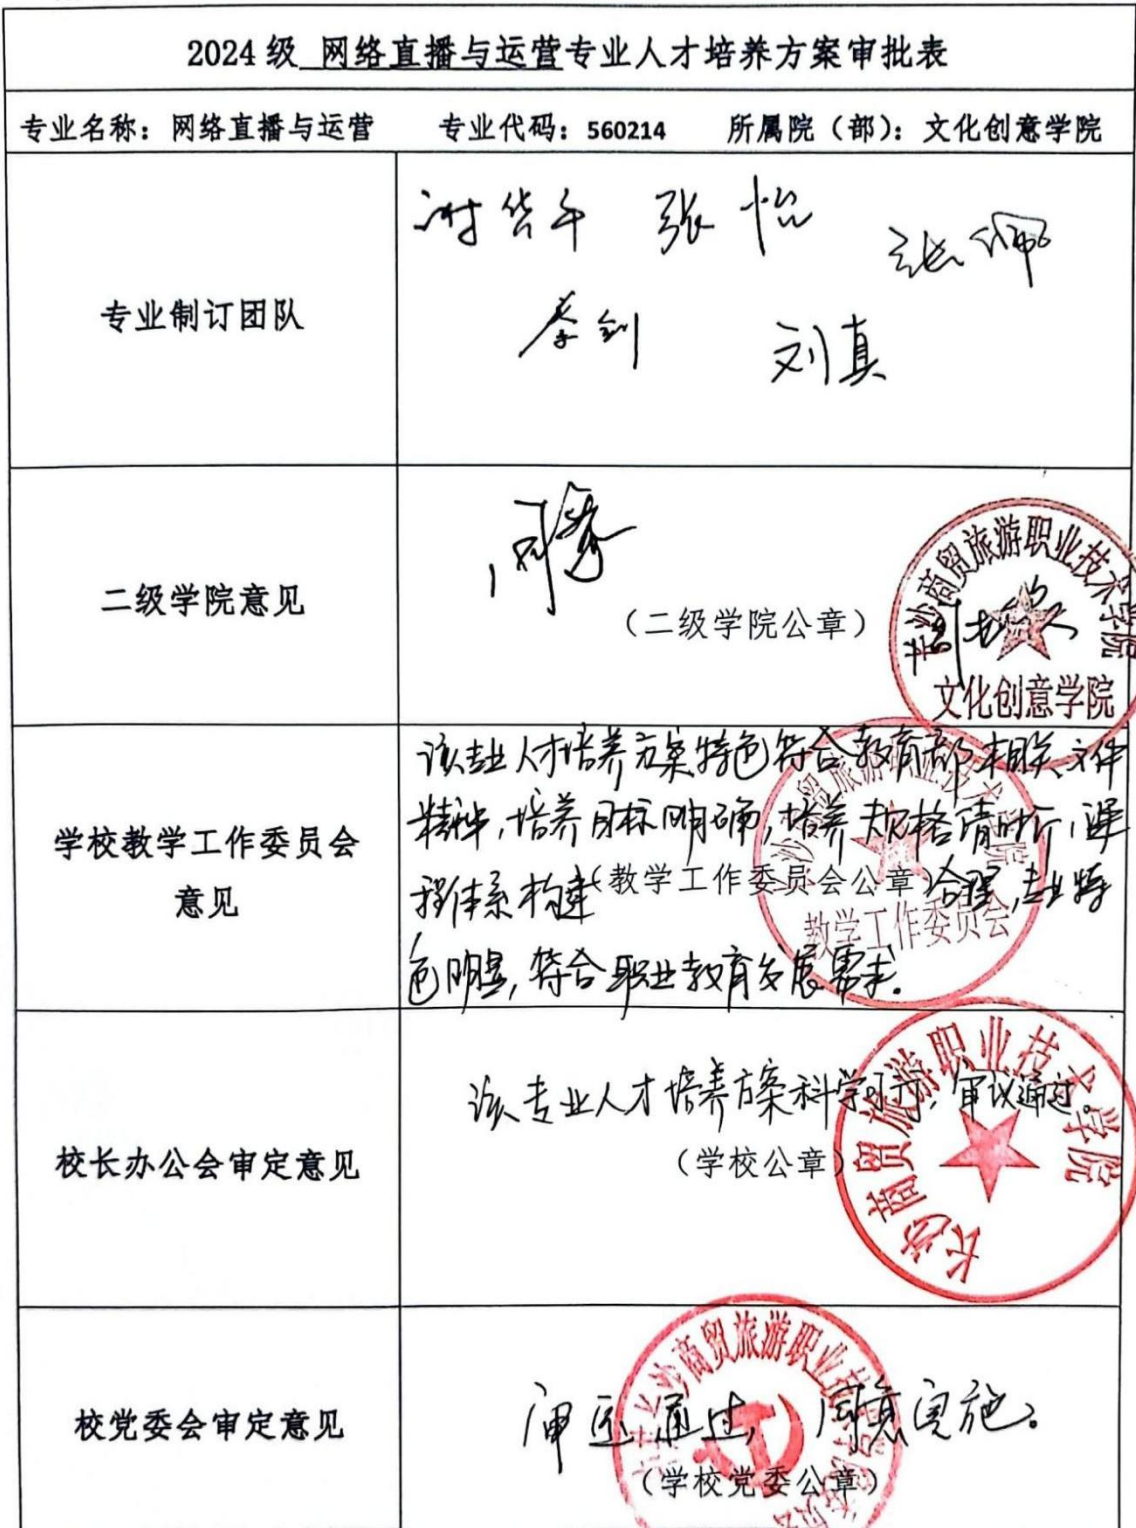 2024级 网络直播与运营专业人才培养方案审批表
专业名称：网络直播与运营 专业代码：560214 所属院（部）：文化创意学院
专业制订团队
张怡
张佩
李剑
刘真
二级学院意见
同意
（二级学院公章）
长沙商贸旅游职业技术学院
文化创意学院
学校教学工作委员会
意见
该专业人才培养方案特色符合教育部相关文件
精神，培养目标明确，培养规格清晰，课
程体系构建合理，专业特
（教学工作委员会公章）
色明显，符合职业教育发展需求。
教学工作委员会
校长办公会审定意见
该专业人才培养方案科学可行，审议通过。
（学校公章）
长沙商贸旅游职业技术学院
校党委会审定意见
审定通过，同意实施。
（学校党委公章）
长沙商贸旅游职业技术学院